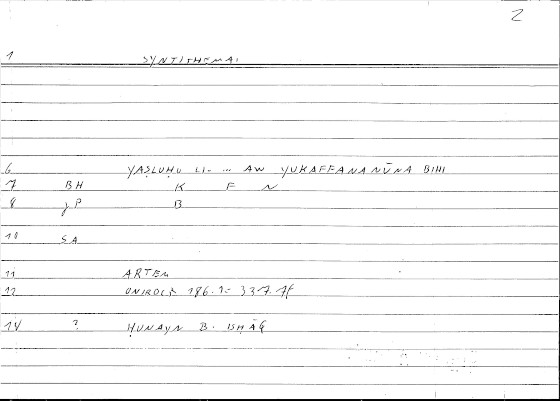 2
1 SYNTITHEMAI
6 YAṢLUḤU LI- ... AW YUKAFFANANŪNA BIHI
7 BH K F N
8 γP B
10 SA
11 ARTEM
12 ONIROCR 186.7= 337.15
14 ? ḤUNAYN B. ISḤĀQ